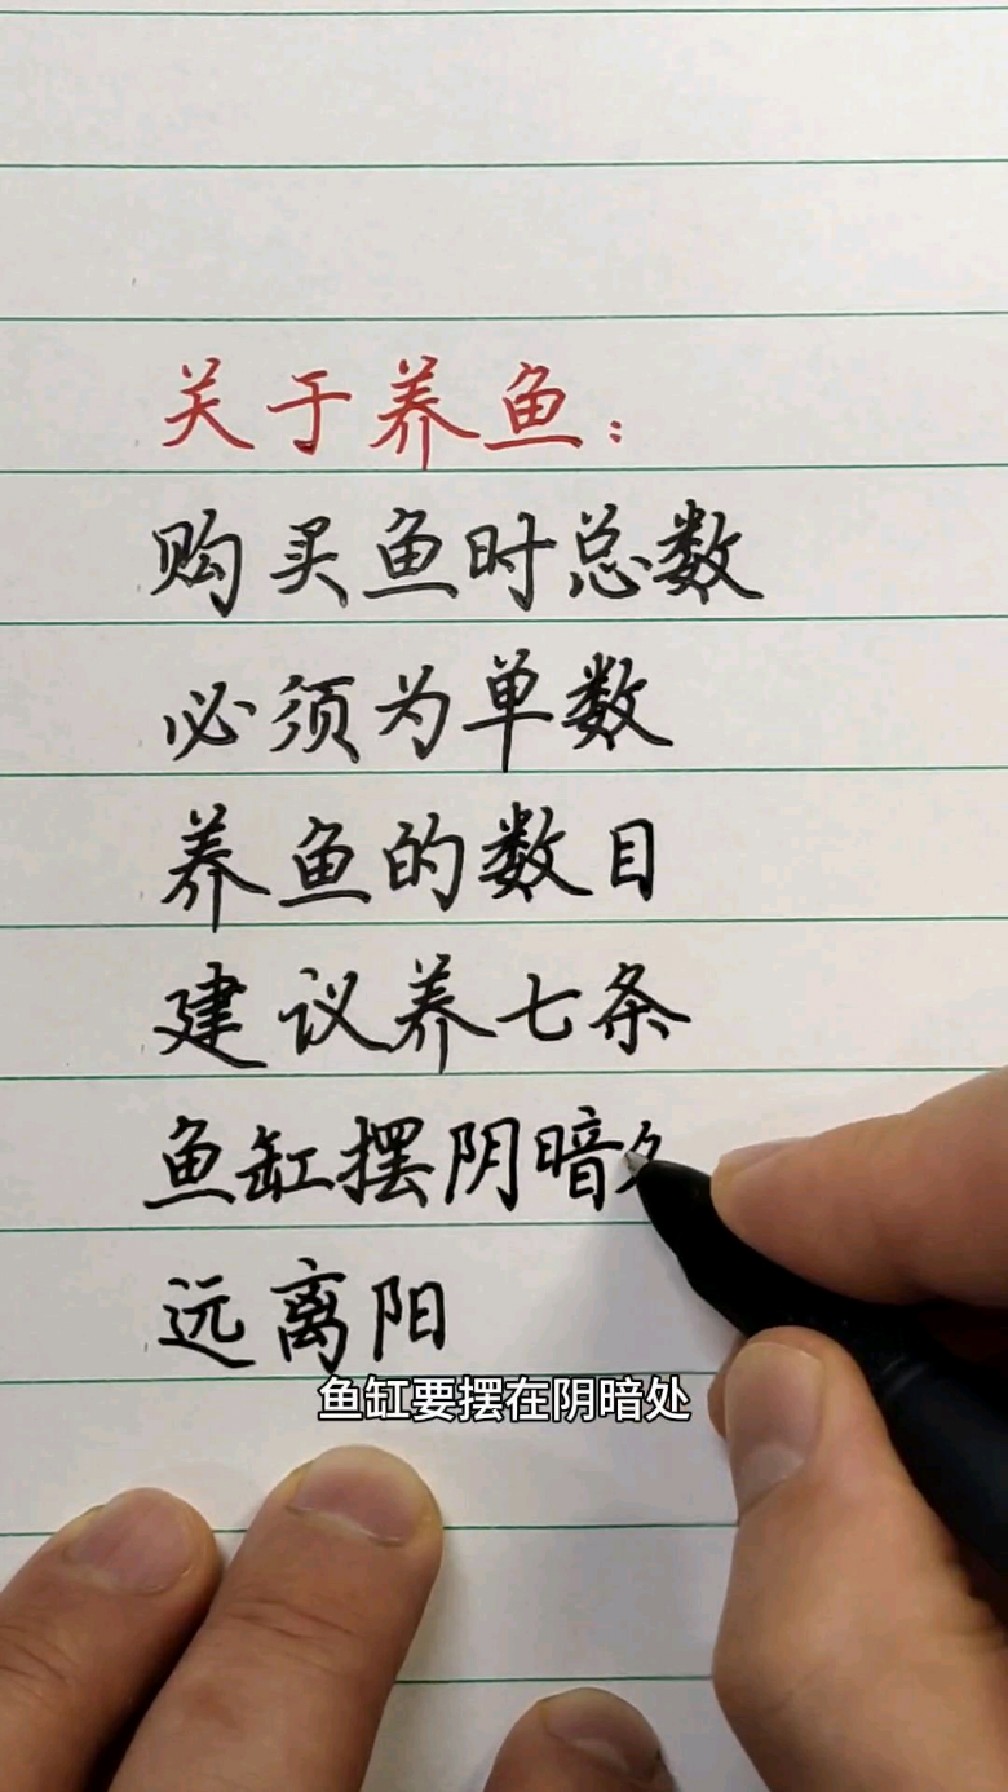 关于养鱼：
购买鱼时总数
必须为单数
养鱼的数目
建议养七条
鱼缸摆阴暗
远离阳
鱼缸要摆在阴暗处